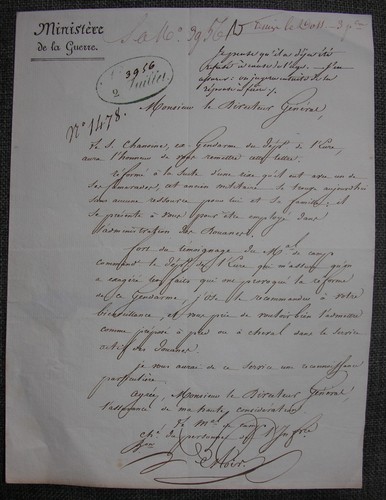 Ministère
de la Guerre.
3956
2 Juillet
N° 1478.
Je pense qu'il a déjà été
refusé à cause de l'âge.
Monsieur le Directeur Général,
Le S. ex-Gendarme du Dépt de l'Eure,
aura l'honneur de vous remettre cette lettre.
réformé à la suite d'une rixe qu'il eut avec un de
ses camarades, cet ancien militaire se trouve aujourd'hui
sans aucune ressource pour lui et sa famille; et
se présente à vous pour être employé dans
l'administration des Douanes.
fort du témoignage du Mal de camp
command. le Dépt de l'Eure, qui m'assure qu'on
a exagéré les faits qui ont provoqué la réforme
de ce Gendarme, j'ose le recommander à votre
bienveillance, et vous prie de vouloir bien l'admettre
comme préposé à pied ou à cheval dans le service
actif des Douanes.
je vous aurai de ce service une reconnaissance
particulière.
agréez, Monsieur le Directeur Général,
l'assurance de ma haute considération
Le Mal de camp
du personnel